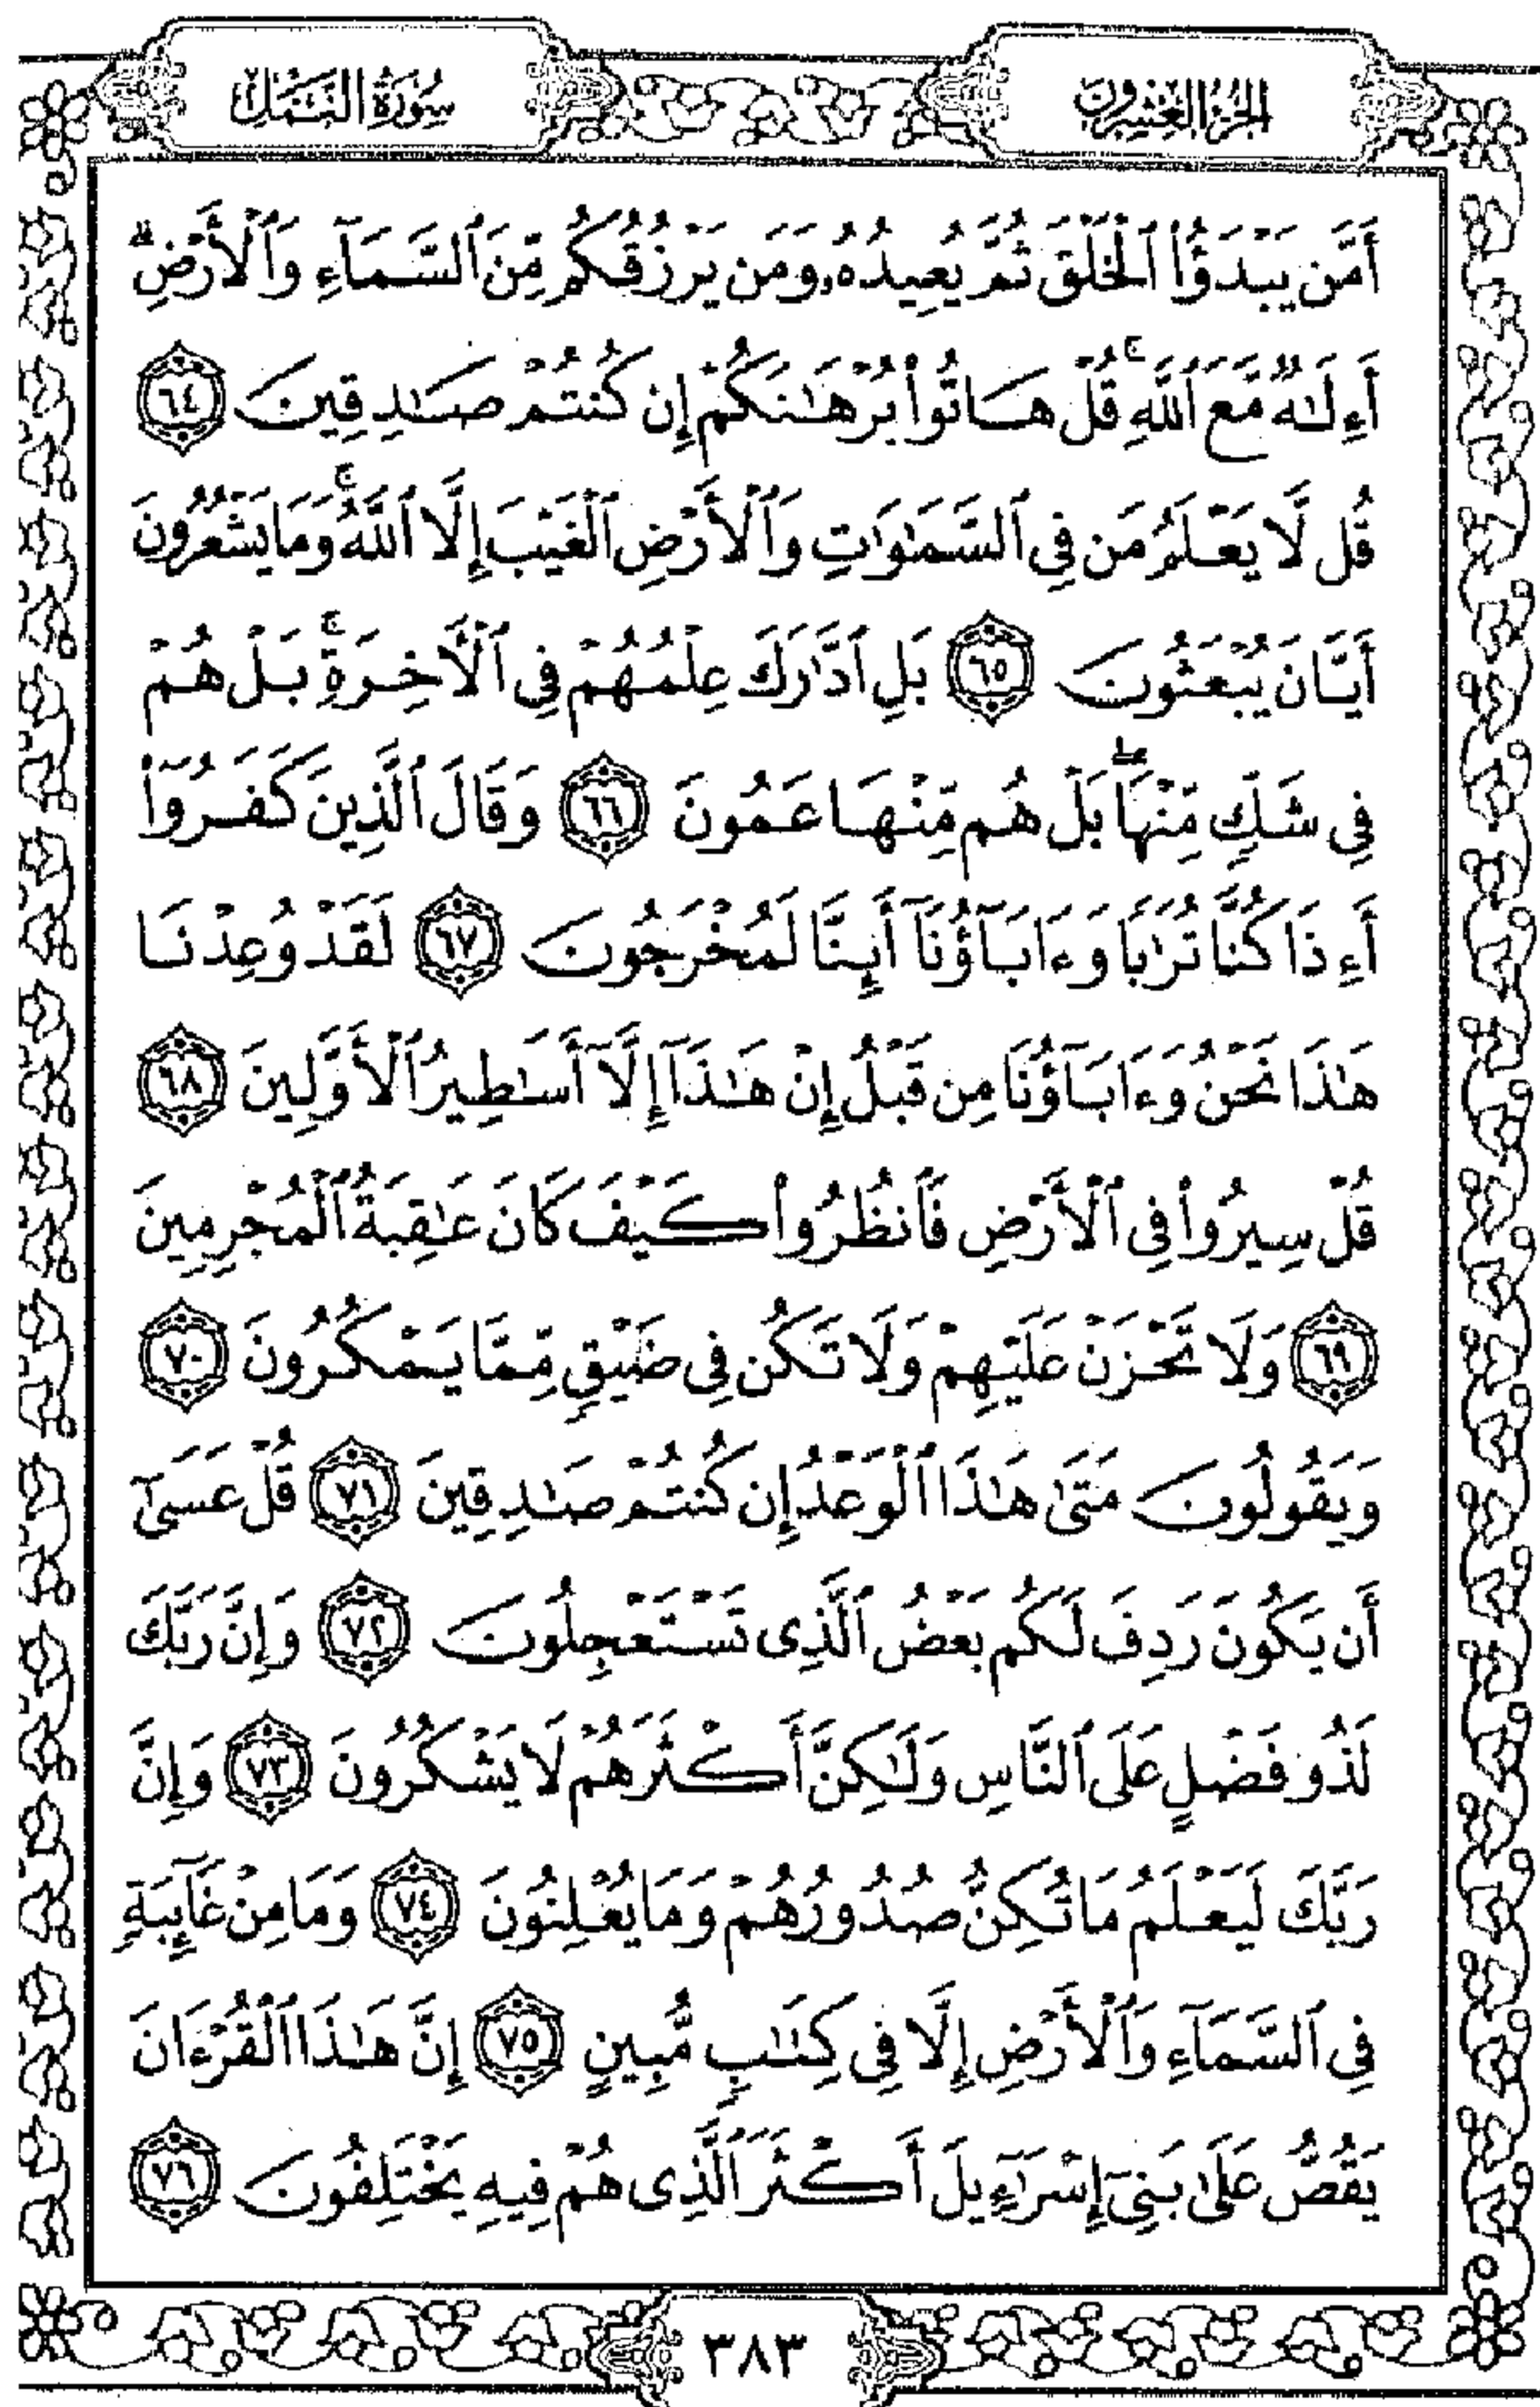 الجزء العشرون
سورة النمل
أَمَّن يَبْدَؤُا۟ ٱلْخَلْقَ ثُمَّ يُعِيدُهُۥ وَمَن يَرْزُقُكُم مِّنَ ٱلسَّمَآءِ وَٱلْأَرْضِ ۗ
أَءِلَـٰهٌ مَّعَ ٱللَّهِ ۚ قُلْ هَاتُوا۟ بُرْهَـٰنَكُمْ إِن كُنتُمْ صَـٰدِقِينَ ٦٤
قُل لَّا يَعْلَمُ مَن فِى ٱلسَّمَـٰوَٰتِ وَٱلْأَرْضِ ٱلْغَيْبَ إِلَّا ٱللَّهُ ۚ وَمَا يَشْعُرُونَ
أَيَّانَ يُبْعَثُونَ ٦٥ بَلِ ٱدَّٰرَكَ عِلْمُهُمْ فِى ٱلْـَٔاخِرَةِ ۚ بَلْ هُمْ
فِى شَكٍّ مِّنْهَا ۖ بَلْ هُم مِّنْهَا عَمُونَ ٦٦ وَقَالَ ٱلَّذِينَ كَفَرُوٓا۟
أَءِذَا كُنَّا تُرَٰبًا وَءَابَآؤُنَآ أَئِنَّا لَمُخْرَجُونَ ٦٧ لَقَدْ وُعِدْنَا
هَـٰذَا نَحْنُ وَءَابَآؤُنَا مِن قَبْلُ إِنْ هَـٰذَآ إِلَّآ أَسَـٰطِيرُ ٱلْأَوَّلِينَ ٦٨
قُلْ سِيرُوا۟ فِى ٱلْأَرْضِ فَٱنظُرُوا۟ كَيْفَ كَانَ عَـٰقِبَةُ ٱلْمُجْرِمِينَ
٦٩ وَلَا تَحْزَنْ عَلَيْهِمْ وَلَا تَكُن فِى ضَيْقٍ مِّمَّا يَمْكُرُونَ ٧٠
وَيَقُولُونَ مَتَىٰ هَـٰذَا ٱلْوَعْدُ إِن كُنتُمْ صَـٰدِقِينَ ٧١ قُلْ عَسَىٰٓ
أَن يَكُونَ رَدِفَ لَكُم بَعْضُ ٱلَّذِى تَسْتَعْجِلُونَ ٧٢ وَإِنَّ رَبَّكَ
لَذُو فَضْلٍ عَلَى ٱلنَّاسِ وَلَـٰكِنَّ أَكْثَرَهُمْ لَا يَشْكُرُونَ ٧٣ وَإِنَّ
رَبَّكَ لَيَعْلَمُ مَا تُكِنُّ صُدُورُهُمْ وَمَا يُعْلِنُونَ ٧٤ وَمَا مِنْ غَآئِبَةٍ
فِى ٱلسَّمَآءِ وَٱلْأَرْضِ إِلَّا فِى كِتَـٰبٍ مُّبِينٍ ٧٥ إِنَّ هَـٰذَا ٱلْقُرْءَانَ
يَقُصُّ عَلَىٰ بَنِىٓ إِسْرَٰٓءِيلَ أَكْثَرَ ٱلَّذِى هُمْ فِيهِ يَخْتَلِفُونَ ٧٦
٣٨٣